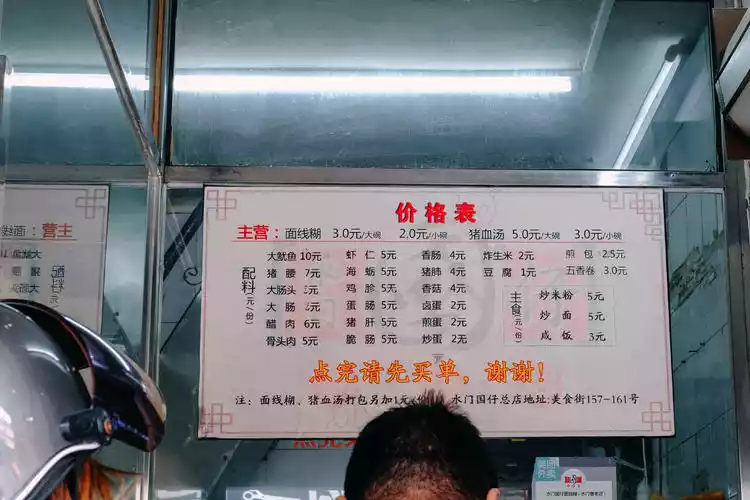 价格表
主营: 面线糊 3.0元/大碗 2.0元/小碗 猪血汤 5.0元/大碗 3.0元/小碗
配料(元/份)
大鱿鱼 10元 虾仁 5元 香肠 4元 炸生米 2元 煎包 2.5元
猪腰 7元 海蛎 5元 猪肺 4元 豆腐 1元 五香卷 3.0元
大肠头 鸡胗 5元 香菇 4元
大肠 蛋肠 5元 卤蛋 2元
醋肉 6元 猪肝 5元 煎蛋 2元
骨头肉 5元 脆肠 5元 炒蛋 2元
主食(元/份)
炒米粉 5元
炒面 5元
咸饭 3元
点完请先买单，谢谢!
注: 面线糊、猪血汤打包另加1元 水门国仔总店地址:美食街157-161号
主营
配料